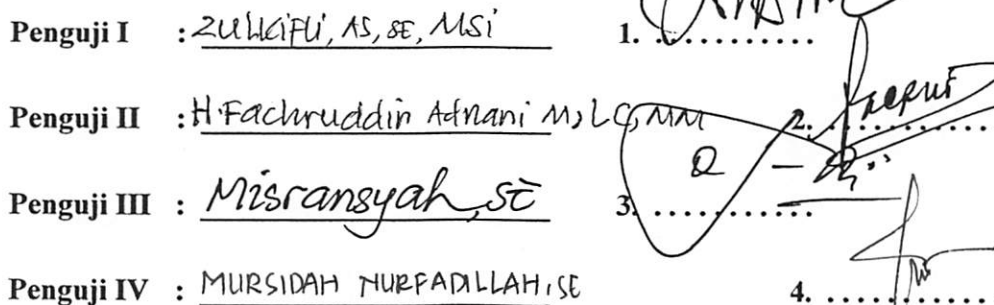 Penguji I : ZULKIFLI, AS, SE, MSi 1. ............
Penguji II : H. Fachruddin Adnani M, LC, MM 2. ............
Penguji III : Misransyah, SE 3. ............
Penguji IV : MURSIDAH NURFADILLAH, SE 4. ............